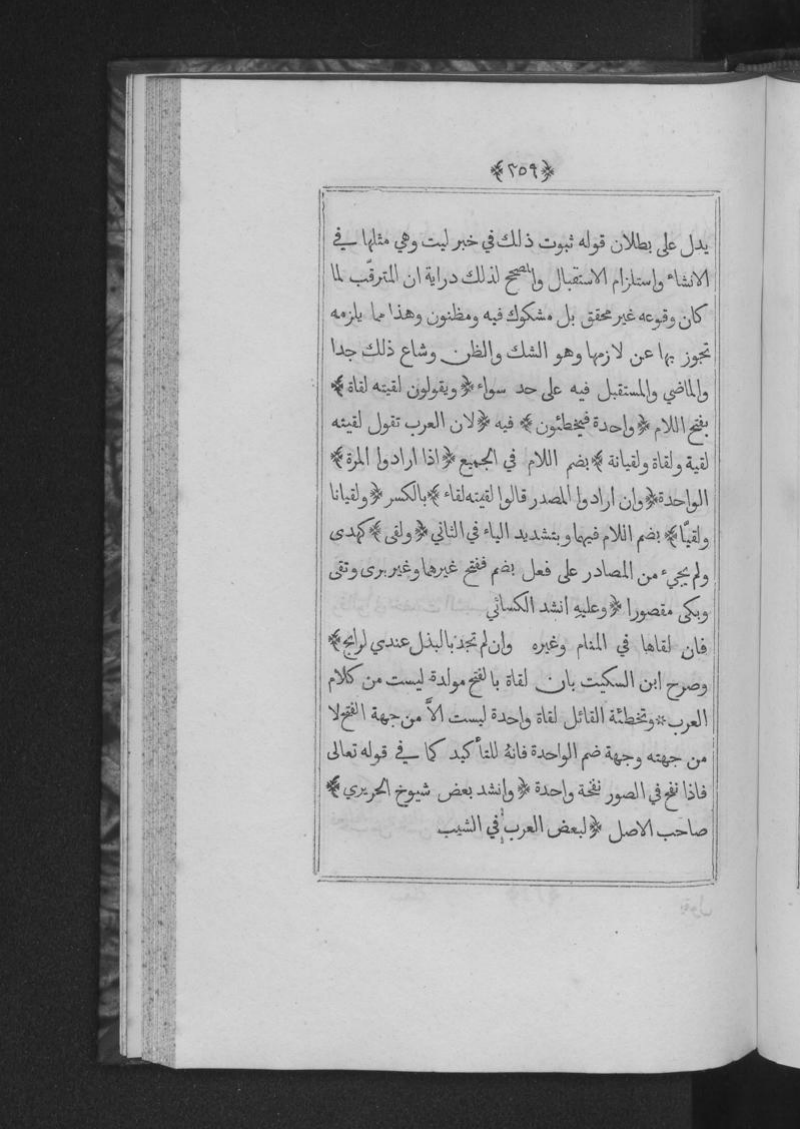 ﴿٢٥٩﴾
يدل على بطلان قوله ثبوت ذلك في خبر ليت وهي مثلها في
الانشاء واستلزام الاستقبال والمصحح لذلك دراية ان المترقّب لما
كان وقوعه غير محقق بل مشكوك فيه ومظنون وهذا مما يلزمه
تجوز بها عن لازمها وهو الشك والظن وشاع ذلك جدا
والماضي والمستقبل فيه على حد سواء ﴿ويقولون لقيته لقاة﴾
بفتح اللام ﴿واحدة فيخطئون﴾ فيه ﴿لان العرب تقول لقيته
لقية ولقاة ولقيانة﴾ بضم اللام في الجميع ﴿اذا ارادوا المرة﴾
الواحدة ﴿وان ارادوا المصدر قالوا لقيته لقاء﴾ بالكسر ﴿ولقيانا
ولقيًا﴾ بضم اللام فيهما وبتشديد الياء في الثاني ﴿ولقى﴾ كهدى
ولم يجيء من المصادر على فعل بضم ففتح غيرها وغير سرى وتقى
وبكى مقصورا ﴿وعليه انشد الكسائي
فان لقاها في المنام وغيره وان لم تجد بالبذل عندي لرابح﴾
وصرح ابن السكيت بان لقاة بالفتح مولدة ليست من كلام
العرب * وتخطئة القائل لقاة واحدة ليست الاَّ من جهة الفتح لا
من جهته وجهة ضم الواحدة فانهُ للتأكيد كما في قوله تعالى
فاذا نفخ في الصور نفخة واحدة ﴿وانشد بعض شيوخ الحريري﴾
صاحب الاصل ﴿لبعض العرب في الشيب